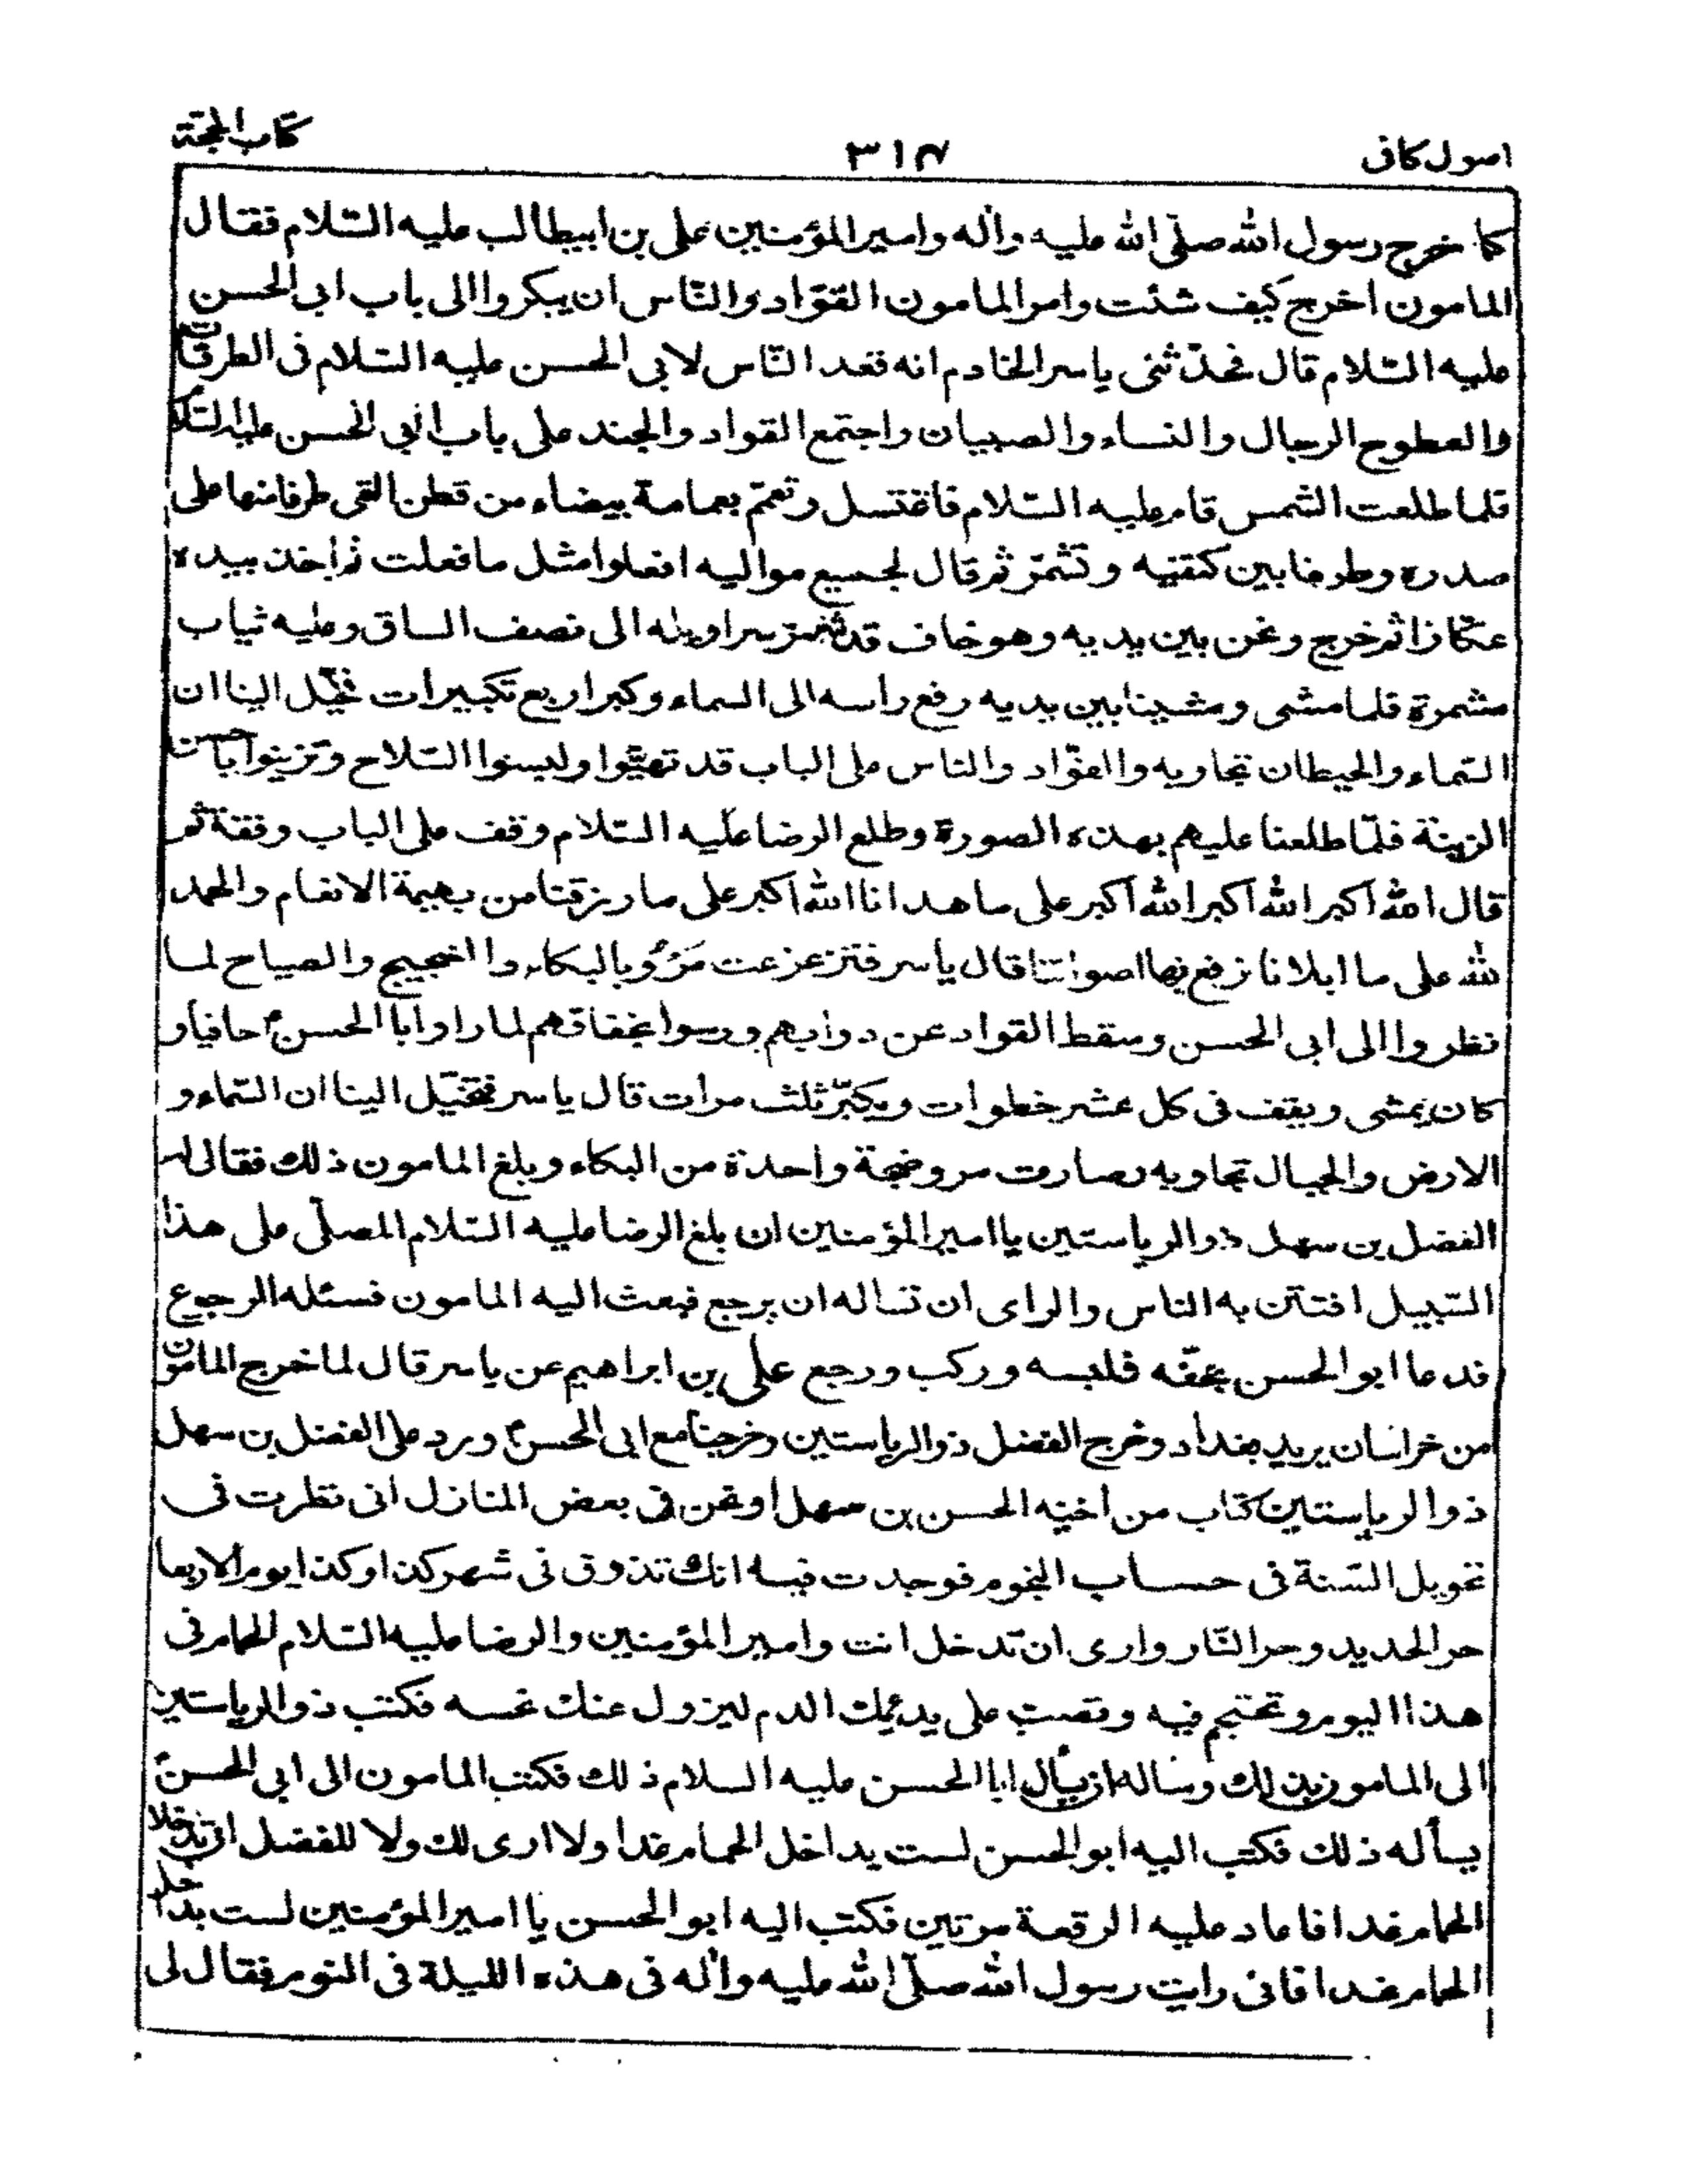 اصول کافی ٣١٣ کتاب الحجة
کما خرج رسول الله صلّی الله علیه واٰله وامیر المؤمنین علی بن ابیطالب علیه السّلام فقال
المامون اخرج کیف شئت وامر المامون القوّاد والنّاس ان یبکروا الی باب ابی الحسن
علیه السّلام قال فحدّثنی یاسر الخادم انه قعد النّاس لابی الحسن علیه السّلام فی الطرقات
والسطوح الرجال والنساء والصبیان واجتمع القواد والجند علی باب ابی الحسن علیه السّلام
فلما طلعت الشّمس قام علیه السّلام فاغتسل وتعمّم بعمامة بیضاء من قطن القی طرفا منها علی
صدره وطرفا بین کتفیه وتشمّر ثم قال لجمیع موالیه افعلوا مثل ما فعلت ثم اخذ بیده
عکّازا ثم خرج ونحن بین یدیه وهو حاف قد شمّر سراویله الی نصف الساق وعلیه ثیاب
مشمرة فلما مشی ومشینا بین یدیه رفع راسه الی السماء وکبر اربع تکبیرات فخیّل الینا ان
السّماء والحیطان تجاوبه والقوّاد والناس علی الباب قد تهیّئوا ولبسوا السّلاح وتزینوا باحسن
الزینة فلمّا طلعنا علیهم بهذه الصورة وطلع الرضا علیه السّلام وقف علی الباب وقفة ثم
قال الله اکبر الله اکبر الله اکبر علی ما هدانا الله اکبر علی ما رزقنا من بهیمة الانعام والحمد
لله علی ما ابلانا نرفع بها اصواتنا قال یاسر فتزعزعت مَرْوُ بالبکاء والضجیج والصیاح لما
نظروا الی ابی الحسن وسقط القواد عن دوابهم ورموا بخفافهم لما راوا ابا الحسن ع حافیا و
کان یمشی ویقف فی کل عشر خطوات ویکبّر ثلث مرات قال یاسر فتخیّل الینا ان السّماء و
الارض والجبال تجاوبه وصارت مرو ضجة واحدة من البکاء وبلغ المامون ذلك فقال له
الفضل بن سهل ذو الریاستین یا امیر المؤمنین ان بلغ الرضا علیه السّلام المصلّی علی هذا
السّبیل افتتن به الناس والرای ان تساله ان یرجع فبعث الیه المامون فسئله الرجوع
فدعا ابو الحسن بخفّه فلبسه ورکب ورجع علی بن ابراهیم عن یاسر قال لما خرج المامون
من خراسان یرید بغداد وخرج الفضل ذو الریاستین وخرجنا مع ابی الحسن ع ورد علی الفضل بن سهل
ذو الریاستین کتاب من اخیه الحسن بن سهل ونحن فی بعض المنازل انی نظرت فی
تحویل السّنة فی حساب النجوم فوجدت فیه انك تذوق فی شهر کذا وکذا یوم الاربعا
حر الحدید وحر النّار واری ان تدخل انت وامیر المؤمنین والرضا علیه السّلام الحمام فی
هذا الیوم وتحتجم فیه وتصب علی یدیك الدم لیزول عنك نحسه فکتب ذو الریاستین
الی المامون بذلك وساله ان یسأل ابا الحسن علیه السلام ذلك فکتب المامون الی ابی الحسن ع
یسأله ذلك فکتب الیه ابو الحسن لست بداخل الحمام غدا ولا اری لك ولا للفضل ان تدخلا
الحمام غدا فاعاد علیه الرقعة مرتین فکتب الیه ابو الحسن یا امیر المؤمنین لست بداخل
الحمام غدا فانی رایت رسول الله صلّی الله علیه واٰله فی هذه اللیلة فی النوم فقال لی